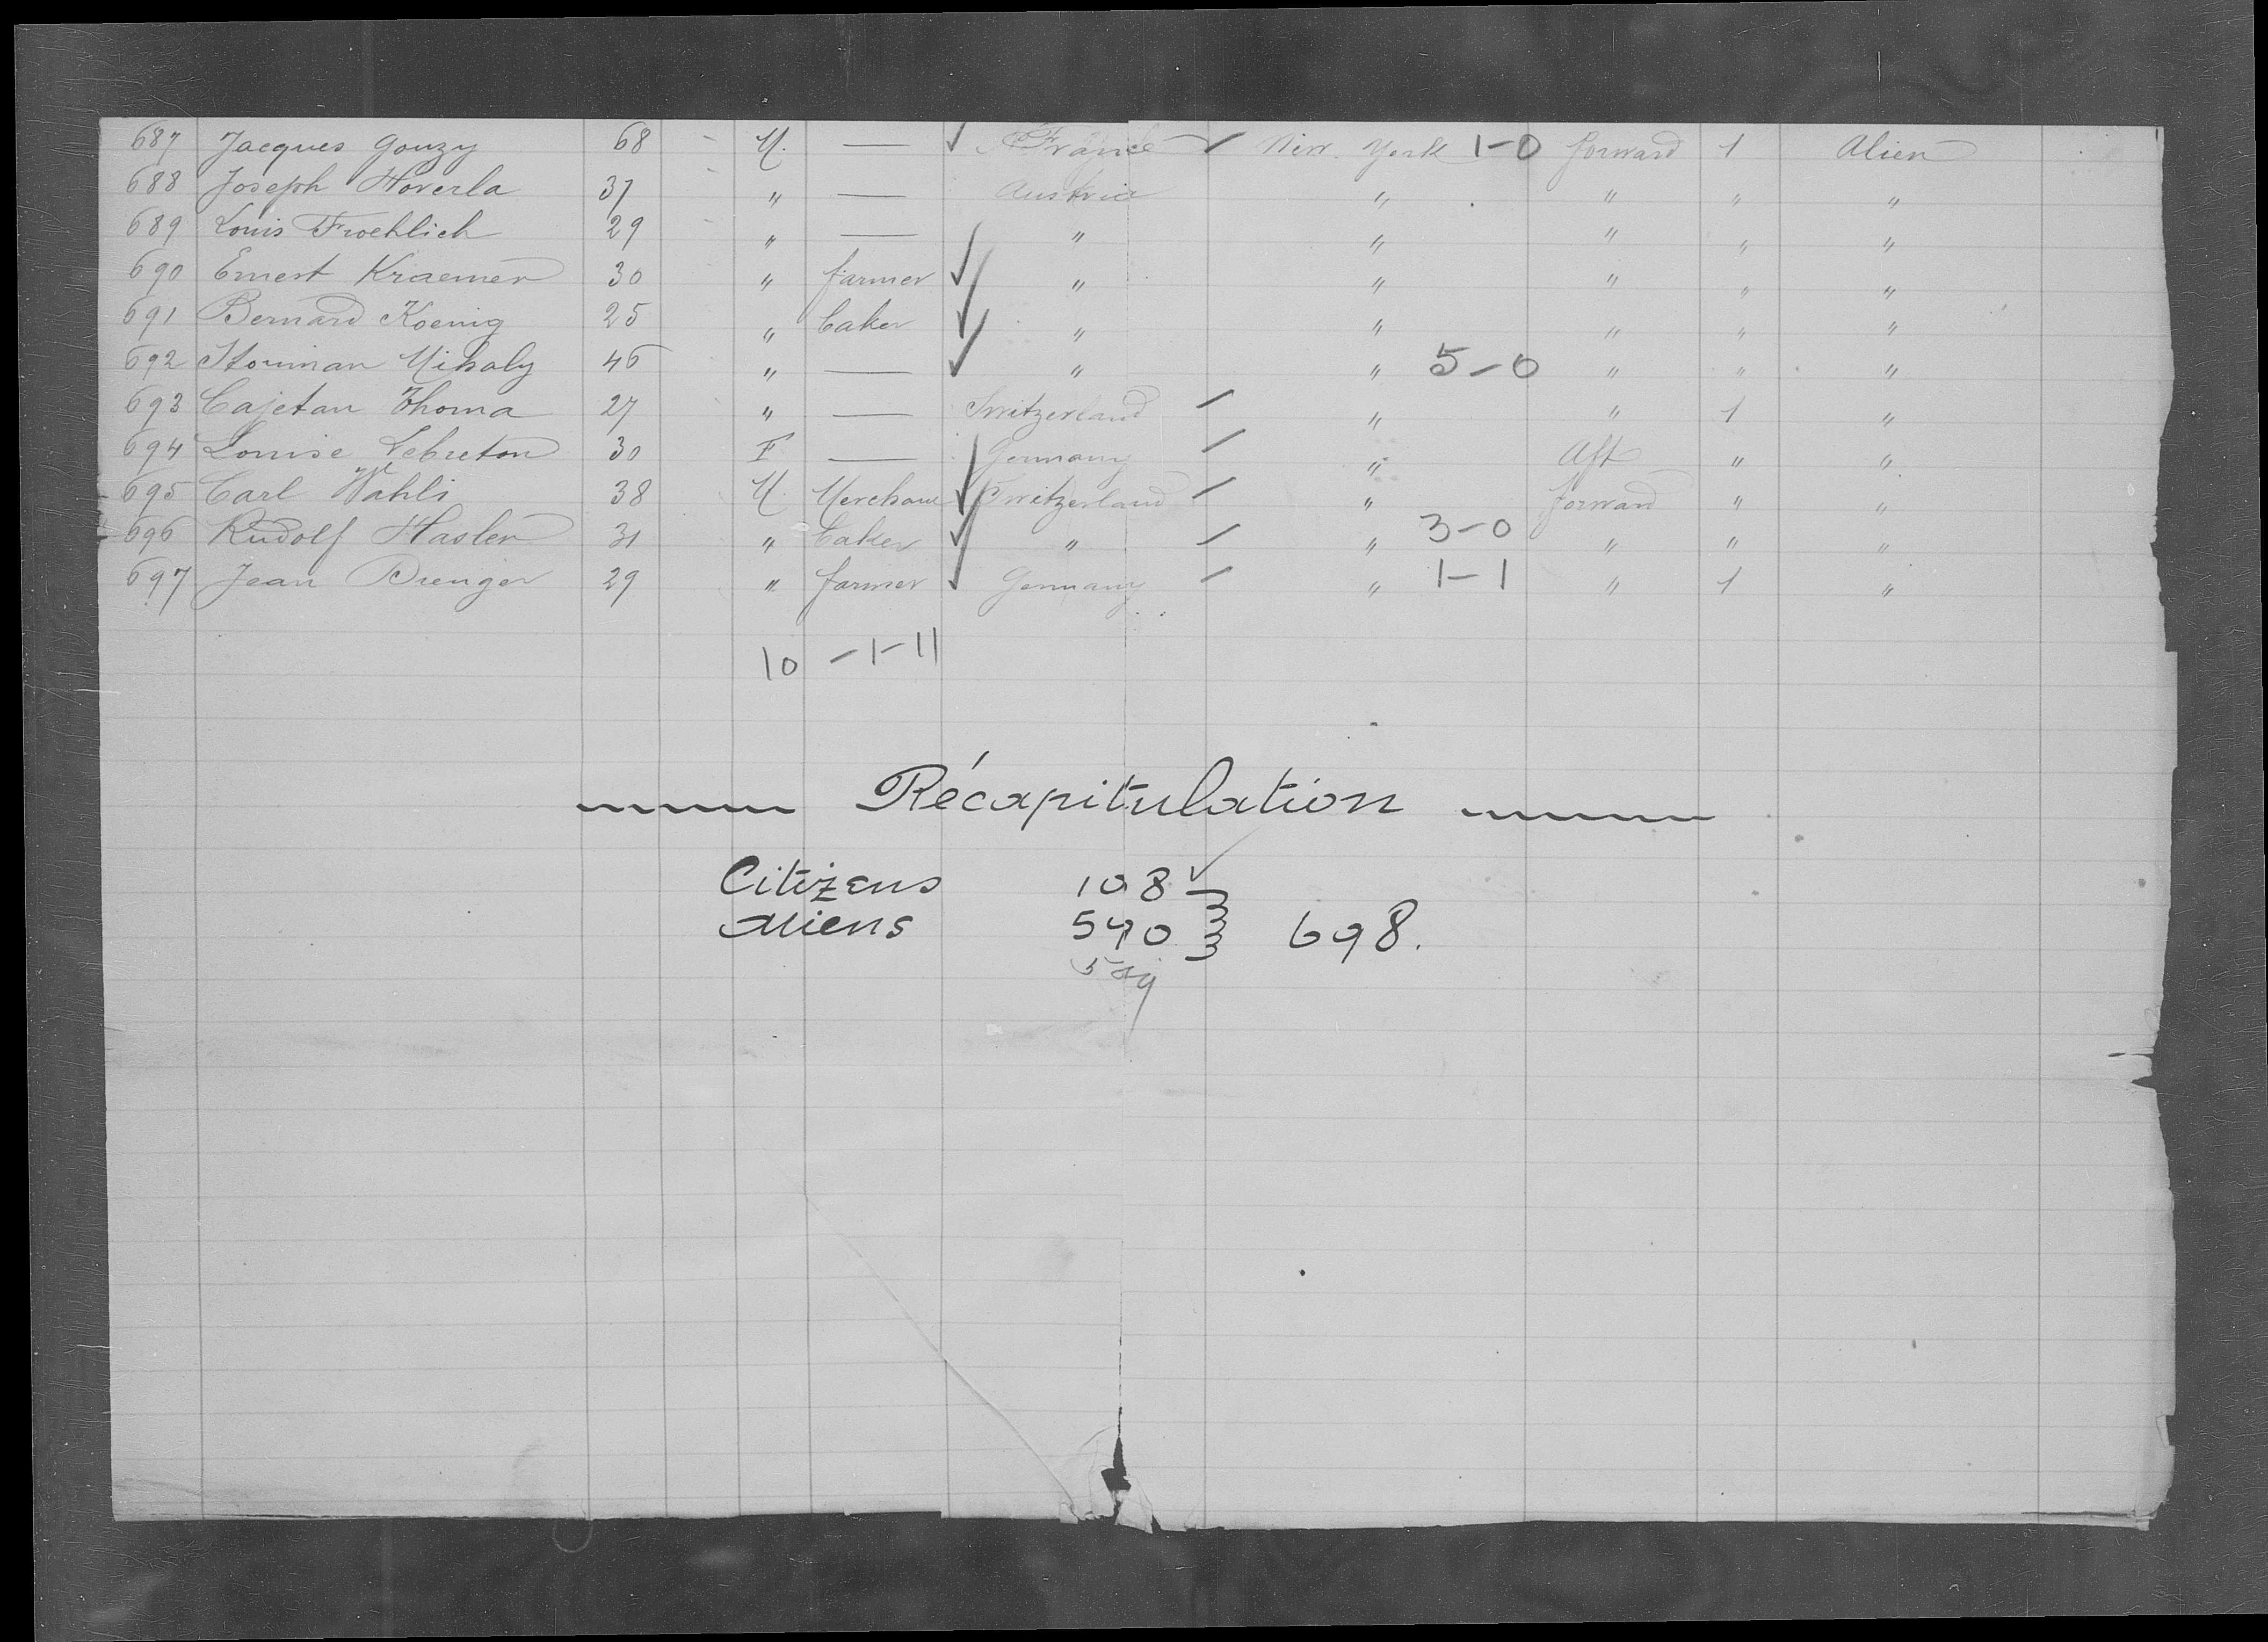 687 Jacques Gouzy 68 M. — France New York 1-0 forward 1 Alien
688 Joseph Hoverla 37 " — Austria " " " "
689 Louis Froehlich 29 " — " " " " "
690 Ernest Kraemer 30 " farmer " " " " "
691 Bernard Koenig 25 " baker " " " " "
692 Mihaly 46 " — " " 5-0 " " "
693 Cajetan Thoma 27 " — Switzerland " " 1 "
694 Louise Lebreton 30 F — Germany " Aft " "
695 Carl Wahli 38 M. Merchant Switzerland " forward " "
696 Rudolf Hasler 31 " baker " " 3-0 " " "
697 Jean 29 " farmer Germany " 1-1 " 1 "
10 -1-11
Récapitulation
Citizens 108
Aliens 590 698.